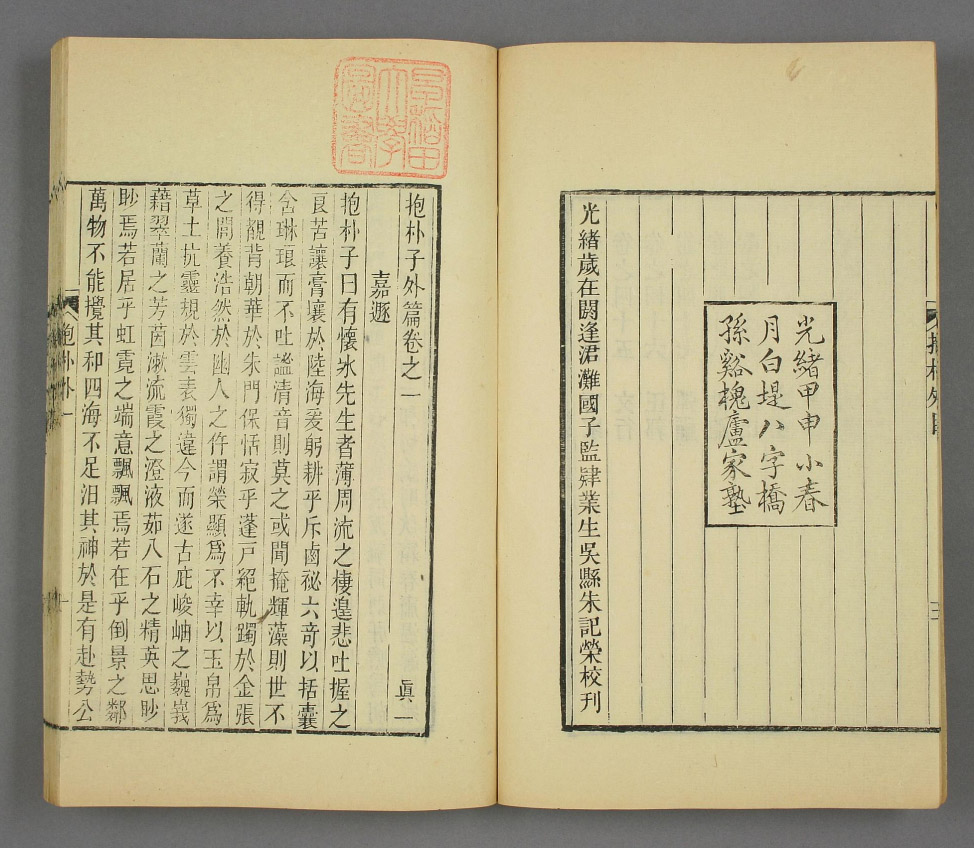 光緒甲申小春
月白堤八字橋
孫谿槐廬家塾
光緒歲在閼逢涒灘國子監肄業生吳縣朱記榮校刊
早稻田
大學
圖書
抱朴子外篇卷之一
眞一
嘉遯
抱朴子曰有懷氷先生者薄周流之棲遑悲吐握之
良苦讓膏壤於陸海爰躬耕乎斥鹵祕六竒以括囊
含琳琅而不吐謐清音則莫之或聞掩輝藻則世不
得覩背朝華於朱門保恬寂乎蓬戸絕軌躅於金張
之閭養浩然於幽人之仵謂榮顯爲不幸以玉帛爲
草土抗靈規於雲表獨違今而遂古庇峻岫之巍峩
藉翠蘭之芳茵漱流霞之澄液茹八石之精英思眇
眇焉若居乎虹霓之端意飄飄焉若在乎倒景之鄰
萬物不能攪其和四海不足汩其神於是有赴勢公
抱朴外一